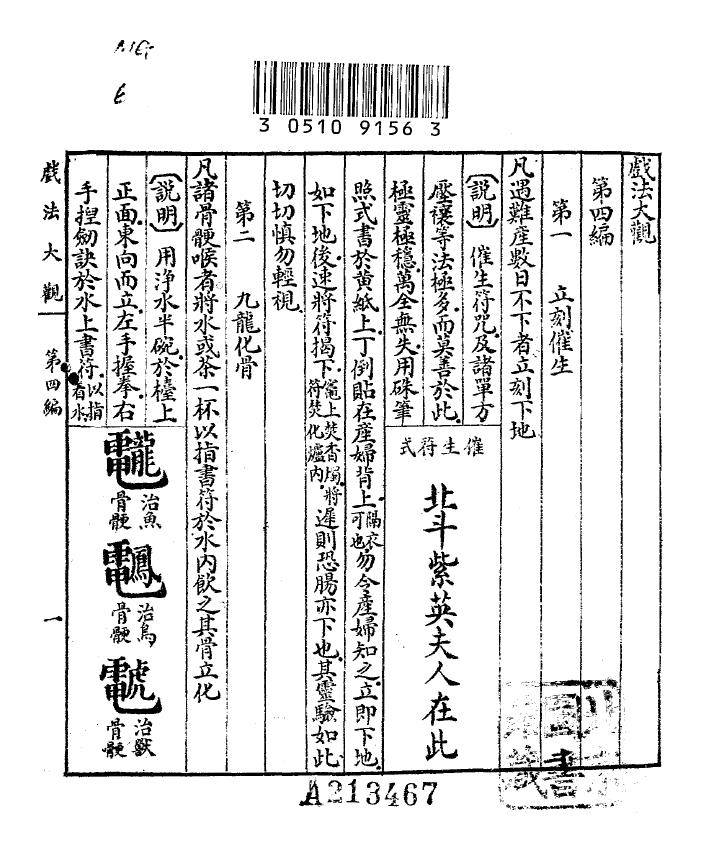 MGT
E
3 0510 9156 3
戲法大觀
第四編
第一 立刻催生
凡遇難産數日不下者立刻下地
(説明)催生符咒及諸單方
壓禳等法極多而莫善於此
極靈極穩萬全無失用硃筆
催生符式
北斗紫英夫人在此
照式書於黄紙上丁倒貼在産婦背上隔衣可也勿令産婦知之立即下地
如下地後速將符揭下竈上焚香燭將符焚化爐内遲則恐腸亦下也其靈驗如此
切切慎勿輕視
第二 九龍化骨
凡諸骨骾喉者將水或茶一杯以指書符於水内飲之其骨立化
(説明)用浄水半碗於檯上
正面東向而立左手握拳右
手揑劒訣於水上書符以指着水
治魚骨骾
治鳥骨骾
治獸骨骾
戲法大觀 第四編 一
A213467